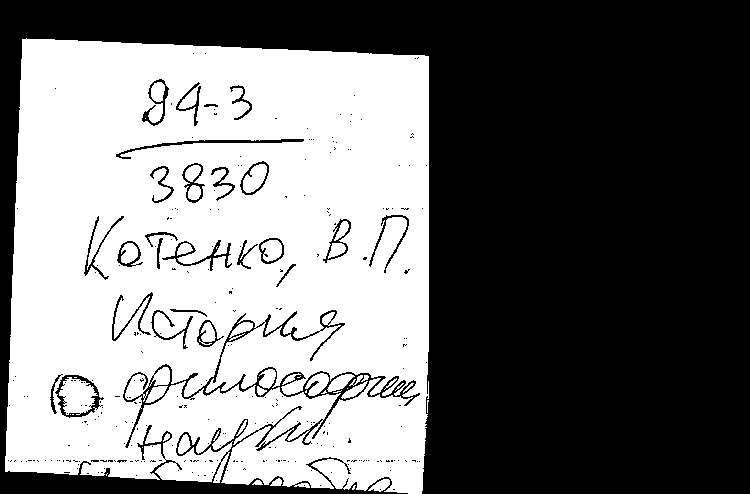 94-3
3830
Котенко, В.П.
История
философии
науки.